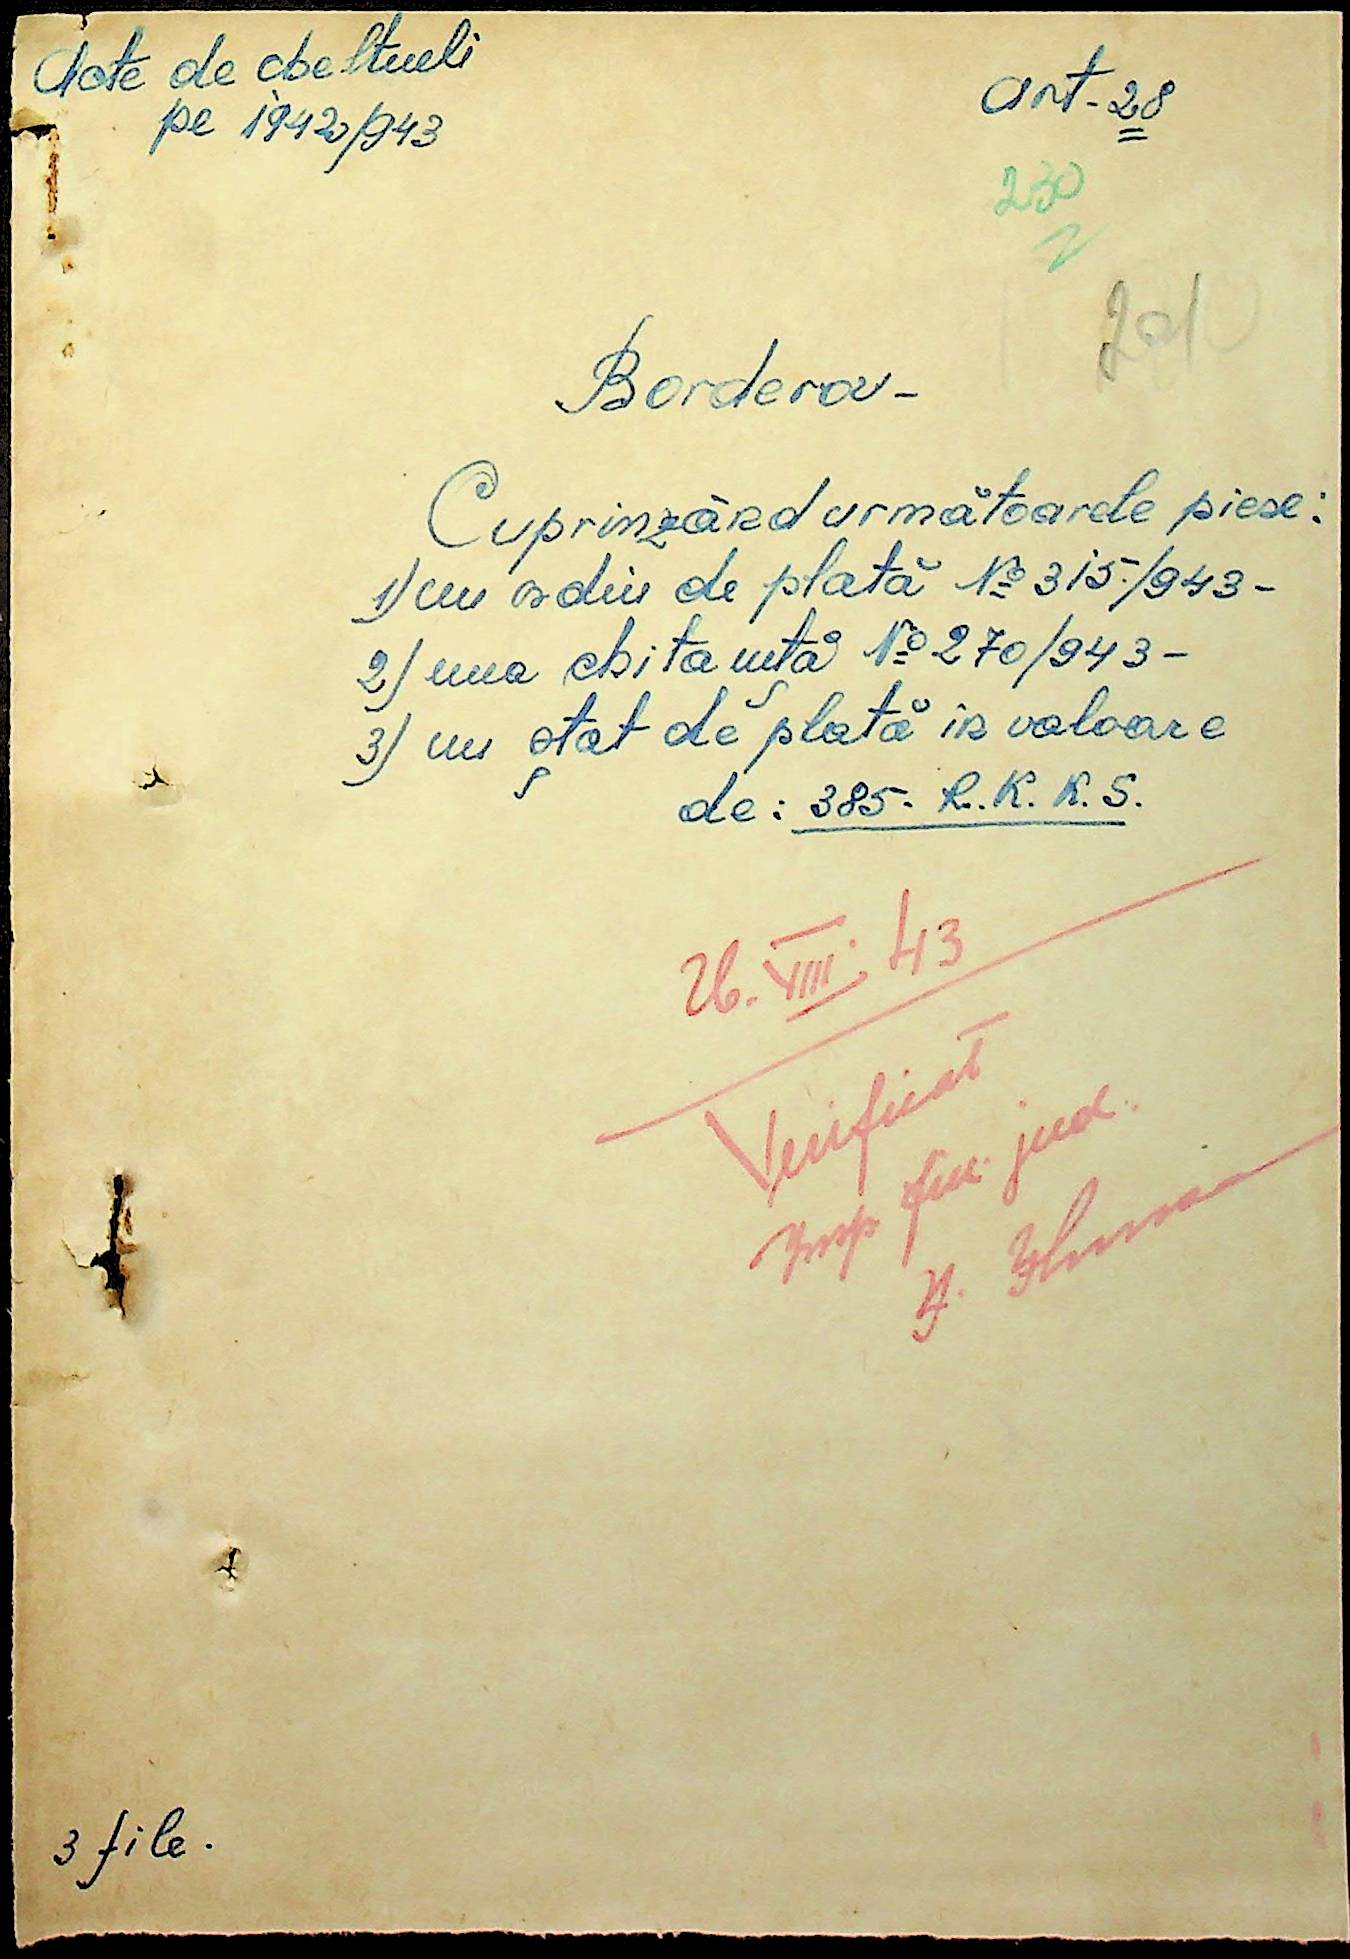 Acte de cheltueli
pe 1942/943
art-28
230
201
Borderou-
Cuprinzând următoarele piese:
1) un ordin de plată № 315./943-
2) una chitanță № 270/943-
3) un ștat de plată in valoare
de: 385. R.K.K.S.
26.VIII.43
Verificat
Insp fin. jud.
3 file.